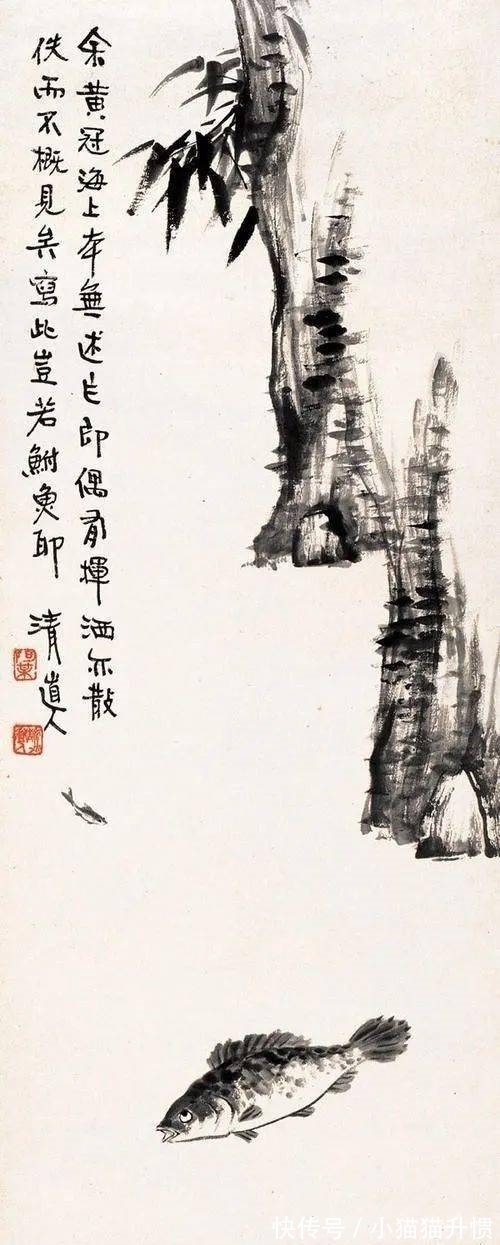 余黄冠海上本無述乍即偶有揮洒亦散
佚而不概見矣寫此豈若鮒魚耶
清道人
快传号 / 小猫猫升惯